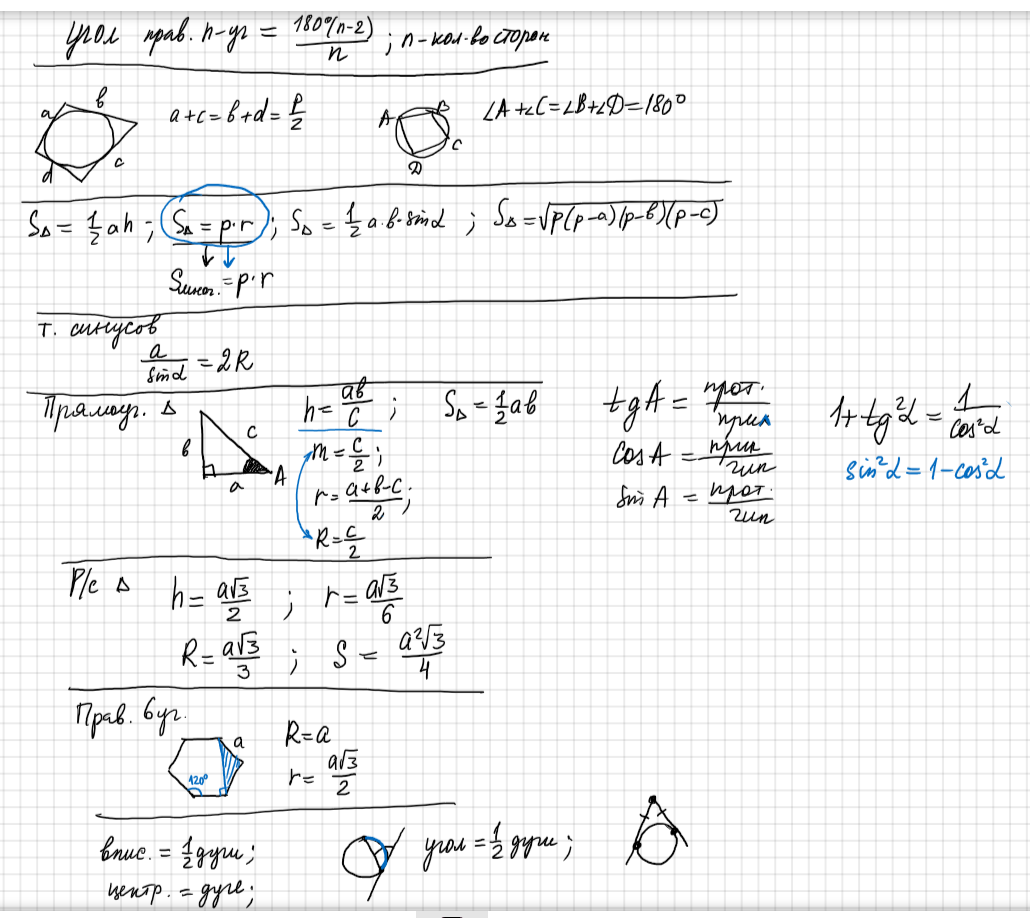 угол прав. n-уг = 180°(n-2)/n ; n-кол-во сторон
a b c d
a+c=b+d=P/2
A B C D
∠A+∠C=∠B+∠D=180°
S△ = 1/2 ah ; S△ = p·r ; S△ = 1/2 a·b·sinα ; S△ = √p(p-a)(p-b)(p-c)
Sмног. = p·r
т. синусов
a/sinα = 2R
Прямоуг. △
b c a A
h = ab/c ; S△ = 1/2 ab
m = c/2 ;
r = a+b-c/2 ;
R = c/2
tgA = прот./прил
cosA = прил/гип
sinA = прот./гип
1+tg²α = 1/cos²α
sin²α = 1-cos²α
Р/с △
h = a√3/2 ; r = a√3/6
R = a√3/3 ; S = a²√3/4
Прав. 6уг.
a
120°
R=a
r = a√3/2
впис. = 1/2 дуги ;
центр. = дуге ;
угол = 1/2 дуги ;